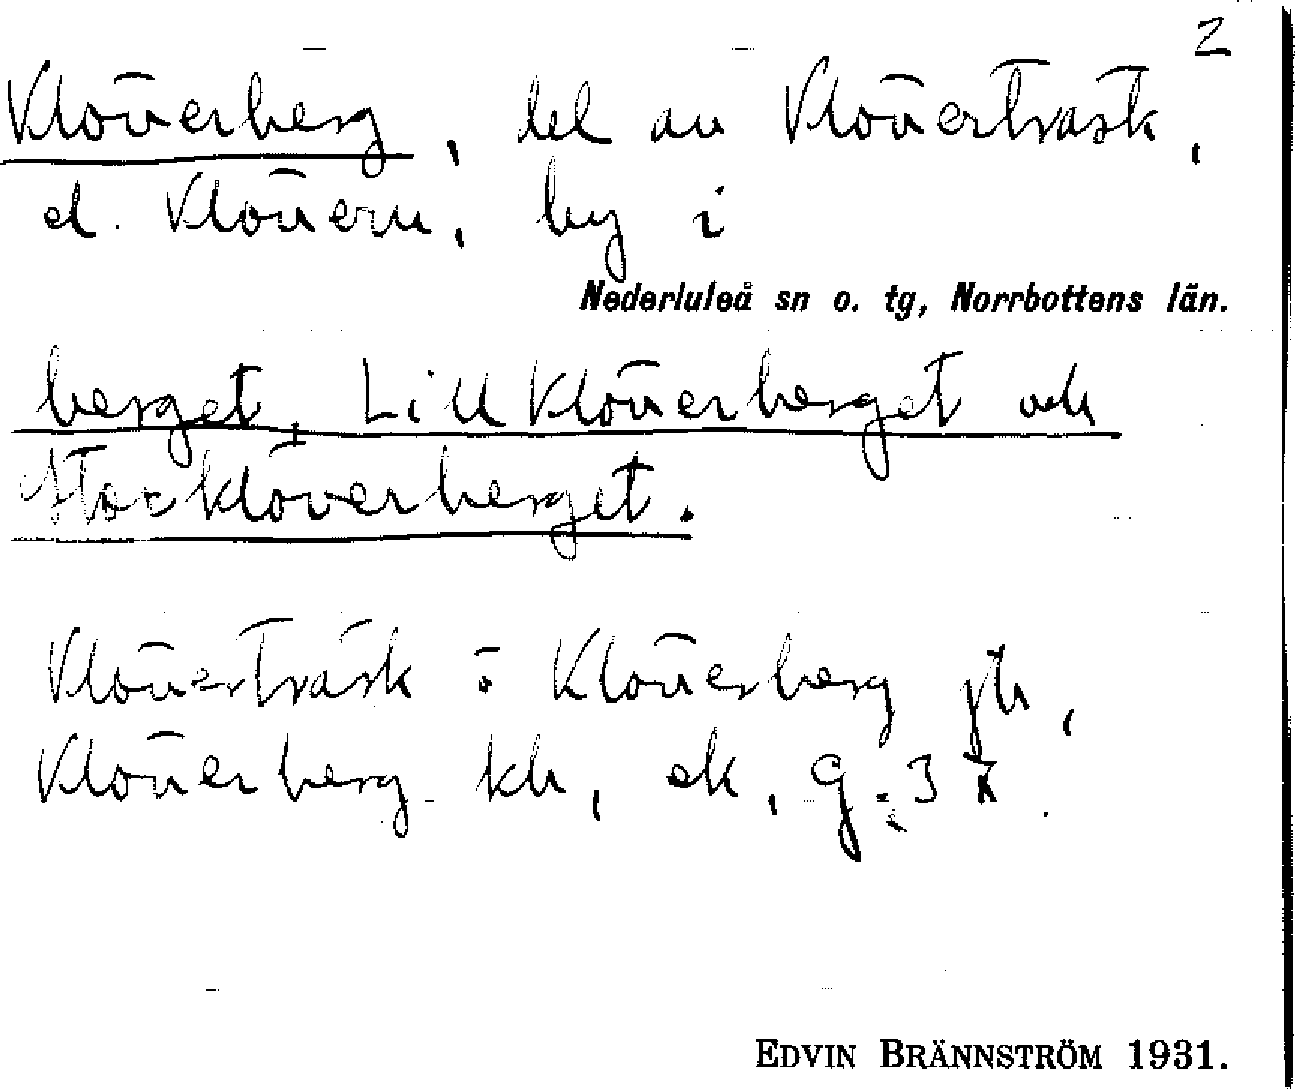 2
Klöverberg, del av Klöverträsk,
el. Klövern, by i
Nederluleå sn o. tg, Norrbottens län.
berget, Lill Klöverberget och
Storklöverberget.
Klöverträsk o Klöverberg jb,
Klöverberg kb, ek, g. 3 K
EDVIN BRÄNNSTRÖM 1931.